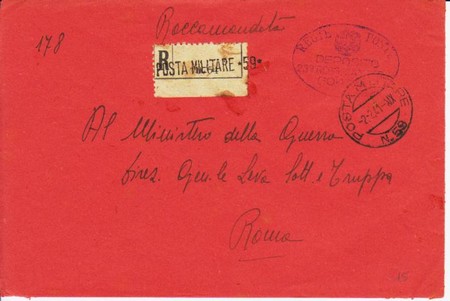 178
Raccomandata
R
POSTA MILITARE *59*
REGIE POSTE
POSTA MILITARE
N.59
Al Ministro della Guerra
Direz. Gen. le Leva Sott. e Truppa
Roma